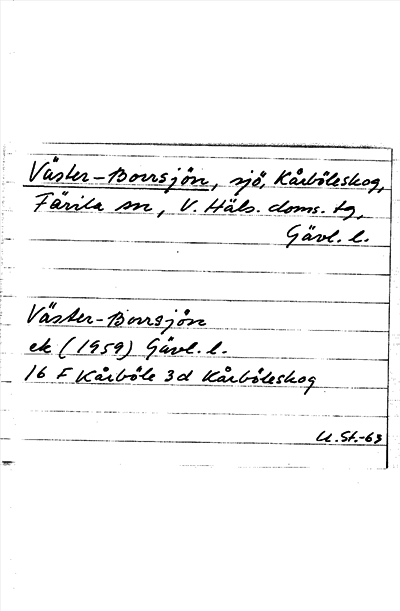 Väster-Borrsjön, sjö, Kårböleskog,
Färila sn, V. Häls. doms. tg,
Gävl. l.
Väster-Borrsjön
ek (1959) Gävl. l.
16 F Kårböle 3d Kårböleskog
U. St.-63